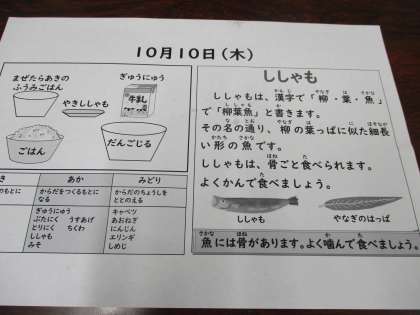 10月10日(木)
まぜたらあきの
ふうみごはん
ぎゅうにゅう
やきししゃも
牛乳
ごはん
だんごじる
ししゃも
ししゃもは、漢字で「柳・葉・魚」
で「柳葉魚」と書きます。
その名の通り、柳の葉っぱに似た細長
い形の魚です。
ししゃもは、骨ごと食べられます。
よくかんで食べましょう。
ししゃも
やなぎのはっぱ
魚には骨があります。よく噛んで食べましょう。
き
あか
みどり
のもとに
からだをつくるもとに
なる
からだのちょうしを
ととのえる
ぎゅうにゅう
ぶたにく うすあげ
とりにく ちくわ
ししゃも
みそ
キャベツ
あおねぎ
にんじん
エリンギ
しめじ